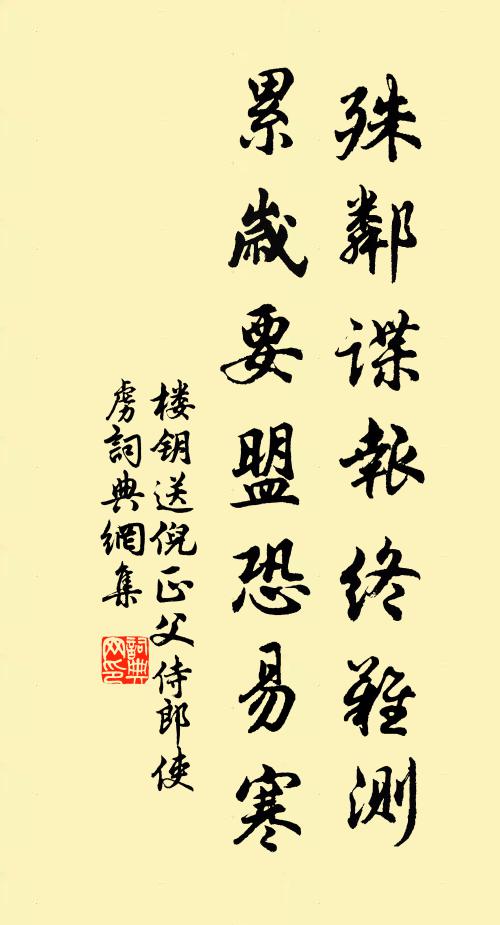 殊鄰諜報終難測
累歲要盟恐易寒
楼钥送倪正父侍郎使
虏詞典網集
詞典网印